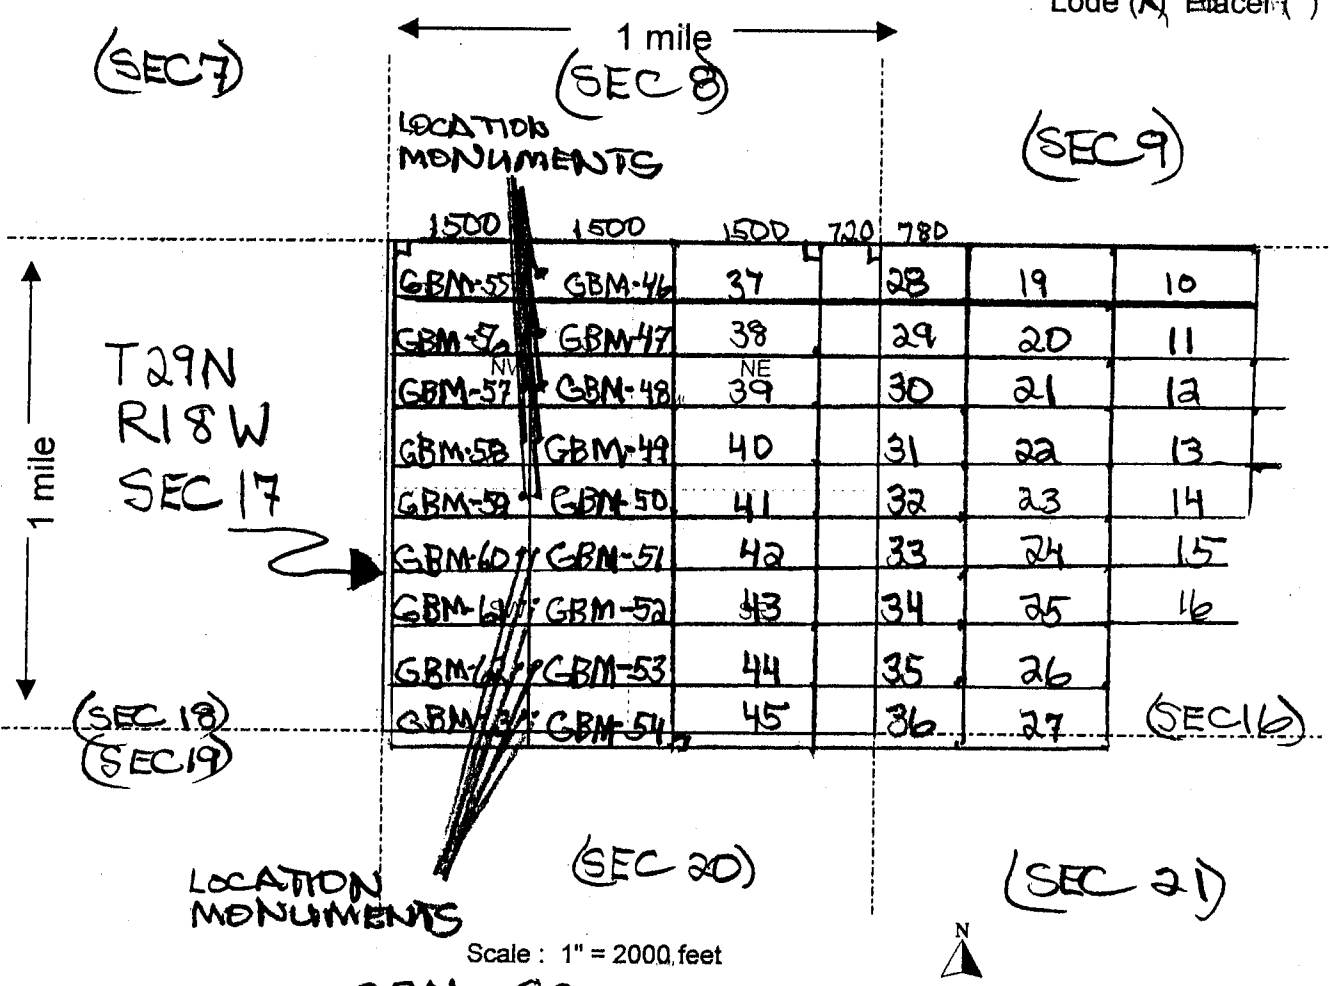 Lode (X) Placer ( )
1 mile
(SEC 7)
(SEC 8)
(SEC 9)
LOCATION
MONUMENTS
1500 1500 1500 720 780
GBM-55 GBM-46 37 28 19 10
GBM-56 GBM-47 38 29 20 11
NE
GBM-57 GBM-48 39 30 21 12
GBM-58 GBM-49 40 31 22 13
GBM-59 GBM-50 41 32 23 14
GBM-60 GBM-51 42 33 24 15
GBM-61 GBM-52 43 34 25 16
GBM-62 GBM-53 44 35 26
GBM-63 GBM-54 45 36 27
1 mile
T29N
R18W
SEC 17
(SEC 18)
(SEC 19)
(SEC 16)
(SEC 20)
(SEC 21)
LOCATION
MONUMENTS
N
Scale : 1" = 2000 feet